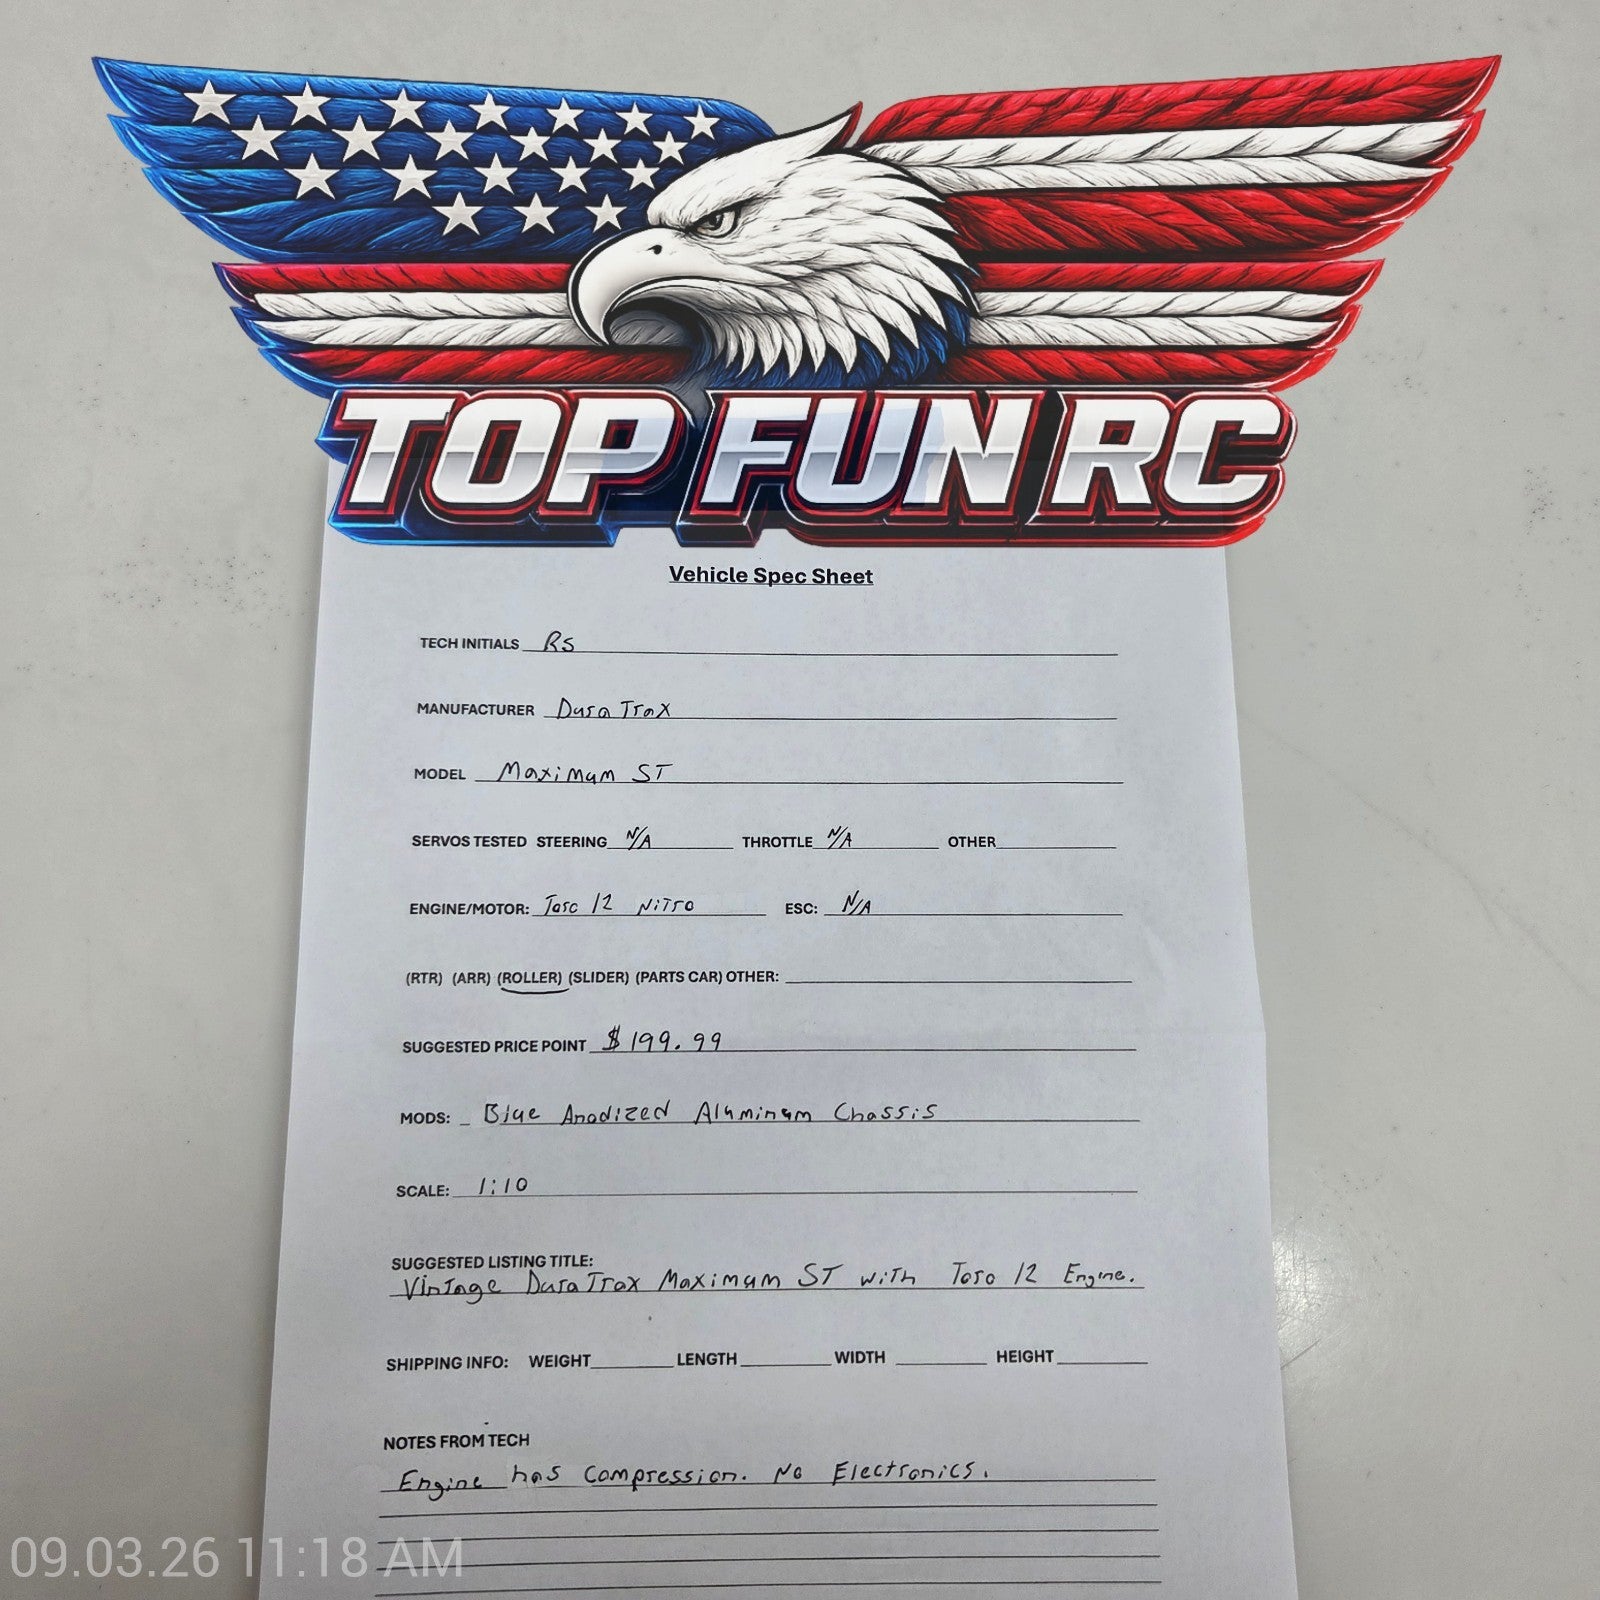 TOP FUN RC
Vehicle Spec Sheet
TECH INITIALS RS
MANUFACTURER DuraTrax
MODEL Maximum ST
SERVOS TESTED STEERING N/A THROTTLE N/A OTHER
ENGINE/MOTOR: Toro 12 Nitro ESC: N/A
(RTR) (ARR) (ROLLER) (SLIDER) (PARTS CAR) OTHER:
SUGGESTED PRICE POINT $199.99
MODS: Blue Anodized Aluminum Chassis
SCALE: 1:10
SUGGESTED LISTING TITLE:
Vintage DuraTrax Maximum ST with Toro 12 Engine.
SHIPPING INFO: WEIGHT LENGTH WIDTH HEIGHT
NOTES FROM TECH
Engine has Compression. No Electronics.
09.03.26 11:18 AM